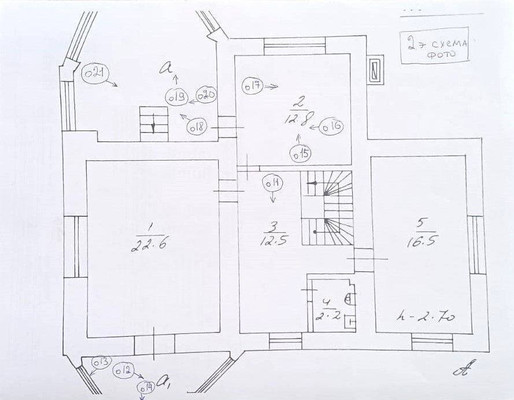 2э СХЕМА
ФОТО
021
а
019
020
017
018
2
12.8
016
015
014
1
22.6
3
12.5
5
16.5
4
2.2
h-2.70
013
012
а1
А